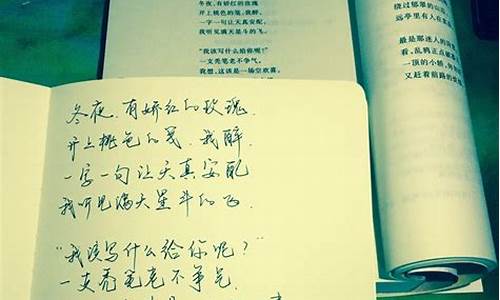 冬夜，有娇红的玫瑰
开上桃色的笺，我醉，
一字一句让天真安配，
我听见满天星斗的飞。
"我该写什么给你呢？"
一支秃笔老不争气，
我想，这该是一场空欢喜，
绕过郁翠的山
远亭里有人在
最是那迷人的
看，乱鸦正点
一顶的小轿，
又赶着前路的
冬夜，有娇红的玫瑰，
开上桃色的笺，我醉
一字一句让天真安配
我听见满天星斗的飞
"我该写什么给你呢？"
一支秃笔老不争气